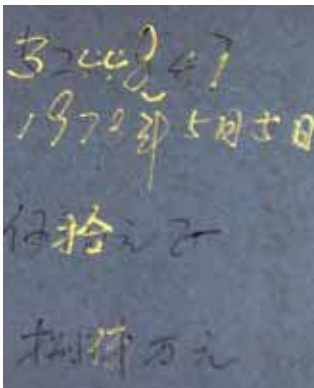 3244847
1972年5月5日
伍拾元正
捌万元